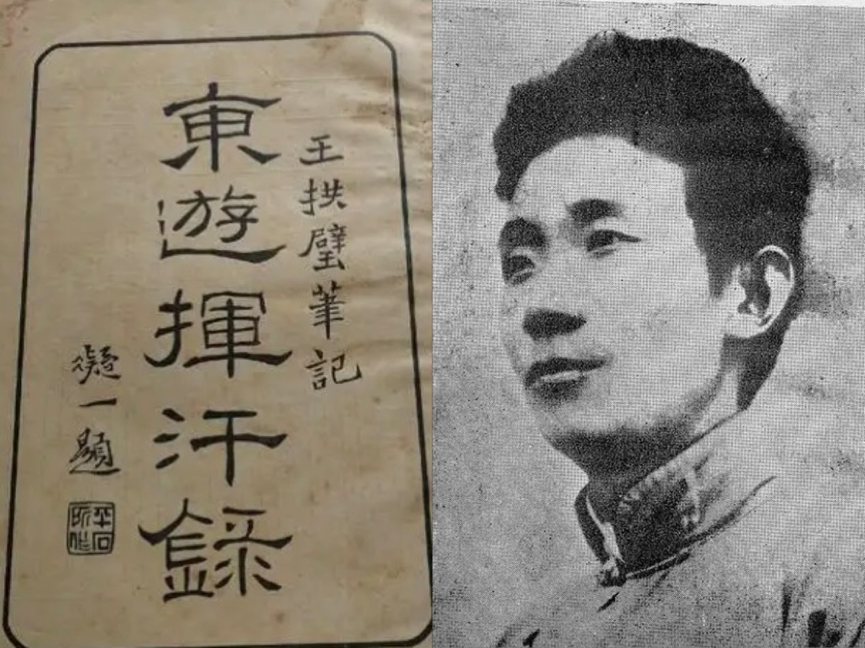 王拱璧筆記
東遊揮汗錄
凝一題